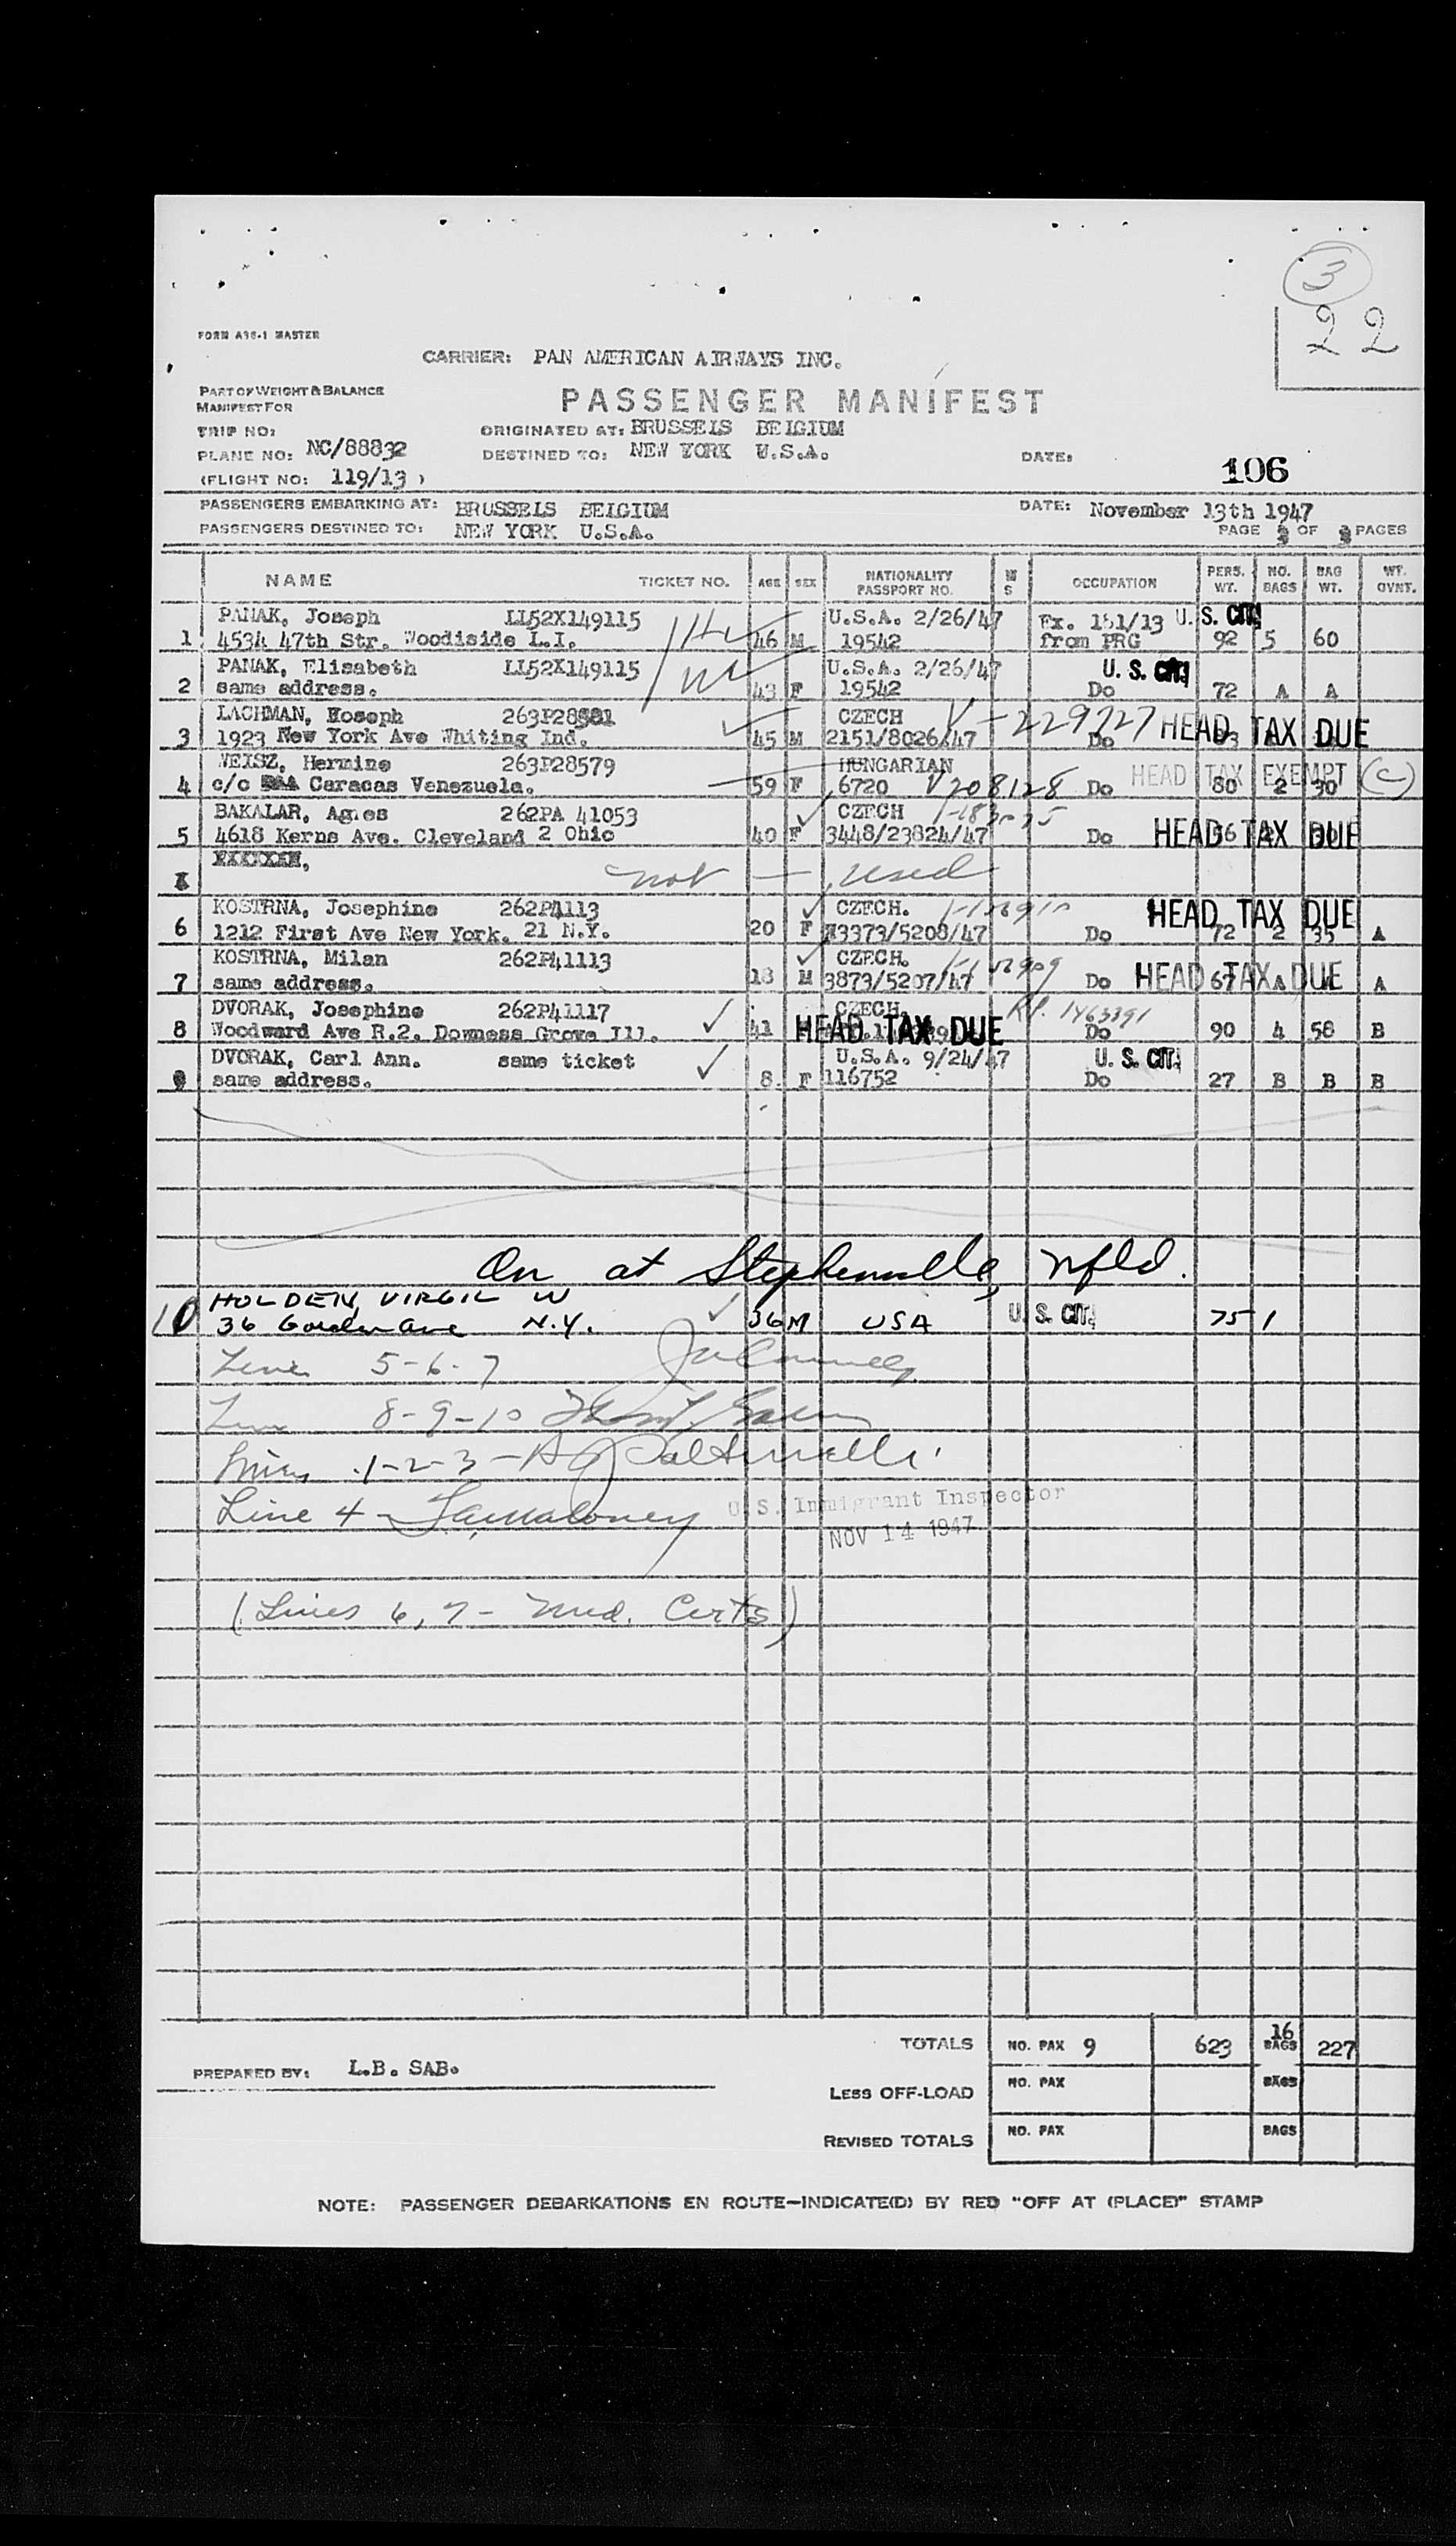 3
22
FORM A36-1 MASTER
CARRIER: PAN AMERICAN AIRWAYS INC.
PART OF WEIGHT & BALANCE
MANIFEST FOR
PASSENGER MANIFEST
TRIP NO:
ORIGINATED AT: BRUSSELS BELGIUM
PLANE NO: NC/88832
DESTINED TO: NEW YORK U.S.A.
DATE:
106
(FLIGHT NO: 119/13 )
PASSENGERS EMBARKING AT: BRUSSELS BELGIUM
DATE: November 13th 1947
PASSENGERS DESTINED TO: NEW YORK U.S.A.
PAGE 3 OF 3 PAGES
NAME TICKET NO. AGE SEX NATIONALITY PASSPORT NO. M S OCCUPATION PERS. WT. NO. BAGS BAG WT. WT. OVNT.
PANAK, Joseph LL52X149115 U.S.A. 2/26/47 Ex. 151/13 U. S. CIT.
1 4534 47th Str. Woodiside L.I. 46 M 19542 from PRG 92 5 60
PANAK, Elisabeth LL52X149115 U.S.A. 2/26/47 U. S. CIT.
2 same address. 43 F 19542 Do 72 A A
LACHMAN, Hoseph 263P28581 CZECH V-229727 HEAD TAX DUE
3 1923 New York Ave Whiting Ind. 45 M 2151/8026/47 Do
WEISZ, Hermine 263P28579 HUNGARIAN HEAD TAX EXEMPT (C)
4 c/o Caracas Venezuela. 59 F 6720 V208128 Do 80 2 30
BAKALAR, Agnes 262PA 41053 CZECH HEAD TAX DUE
5 4618 Kerns Ave. Cleveland 2 Ohio 40 F 3448/23824/47 Do
not — used
KOSTRNA, Josephine 262P41113 CZECH. HEAD TAX DUE
6 1212 First Ave New York. 21 N.Y. 20 F 3373/5208/47 Do 72 2 35 A
KOSTRNA, Milan 262P41113 CZECH. HEAD TAX DUE
7 same address. 18 M 3873/5207/47 Do 67 A A
DVORAK, Josephine 262P41117 CZECH. R.P. 1463391
8 Woodward Ave R.2. Downess Grove Ill. 41 HEAD TAX DUE Do 90 4 58 B
DVORAK, Carl Ann. same ticket U.S.A. 9/24/47 U. S. CIT.
9 same address. 8 F 116752 Do 27 B B B
On at Stephenville, Nfld.
HOLDEN, VIRGIL W
10 36 Garden Ave N.Y. 36 M USA U. S. CIT. 75 1
Line 5-6-7
Line 8-9-10
Lines 1-2-3
Line 4 - Maloney U. S. Immigrant Inspector
NOV 14 1947
(Lines 6, 7 - Med. Certs)
TOTALS NO. PAX 9 623 16 BAGS 227
PREPARED BY: L.B. SAB.
LESS OFF-LOAD NO. PAX BAGS
REVISED TOTALS NO. PAX BAGS
NOTE: PASSENGER DEBARKATIONS EN ROUTE—INDICATE(D) BY RED "OFF AT (PLACE)" STAMP